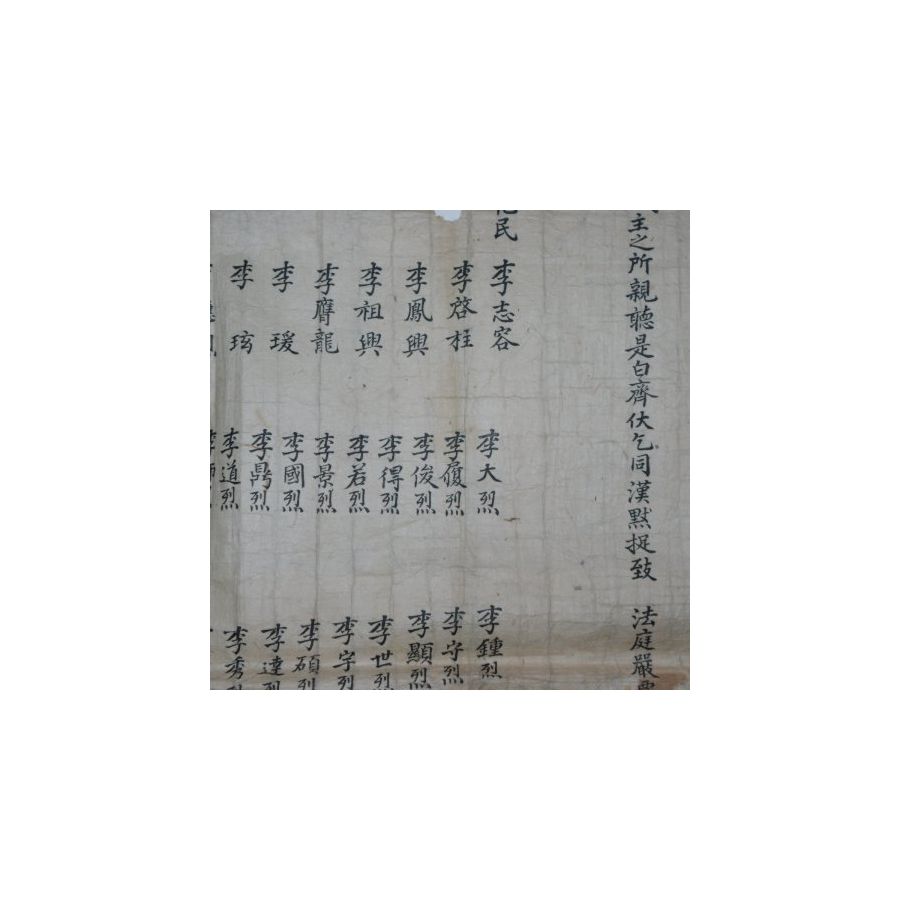 主之所親聽是白齊伏乞同漢黙捉致 法庭嚴
民
李志容 李大烈 李鍾烈
李啓柱 李履烈 李守烈
李鳳興 李俊烈 李顯烈
李祖興 李得烈 李世烈
李膺龍 李若烈 李宇烈
李瑗 李景烈 李碩烈
李玹 李國烈 李達烈
李鼎烈 李秀
李道烈